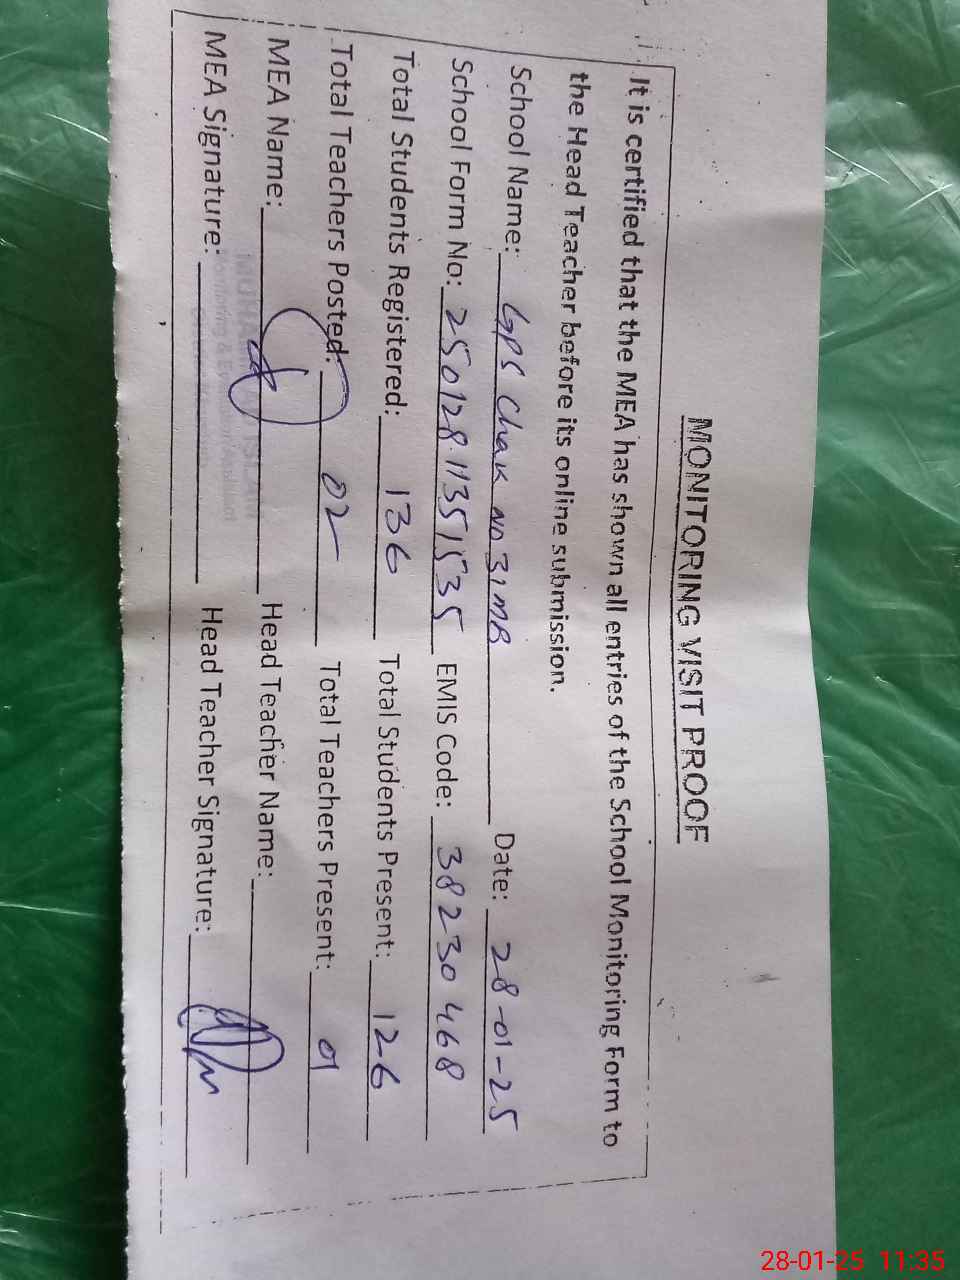 MONITORING VISIT PROOF
It is certified that the MEA has shown all entries of the School Monitoring Form to
the Head Teacher before its online submission.
School Name: GPS Chak no 31MB Date: 28-01-25
School Form No: 250128.1135 1535 EMIS Code: 38230468
Total Students Registered: 136 Total Students Present: 126
Total Teachers Posted: 02 Total Teachers Present: 01
MEA Name: Head Teacher Name:
MEA Signature: Head Teacher Signature:
28-01-25 11:35